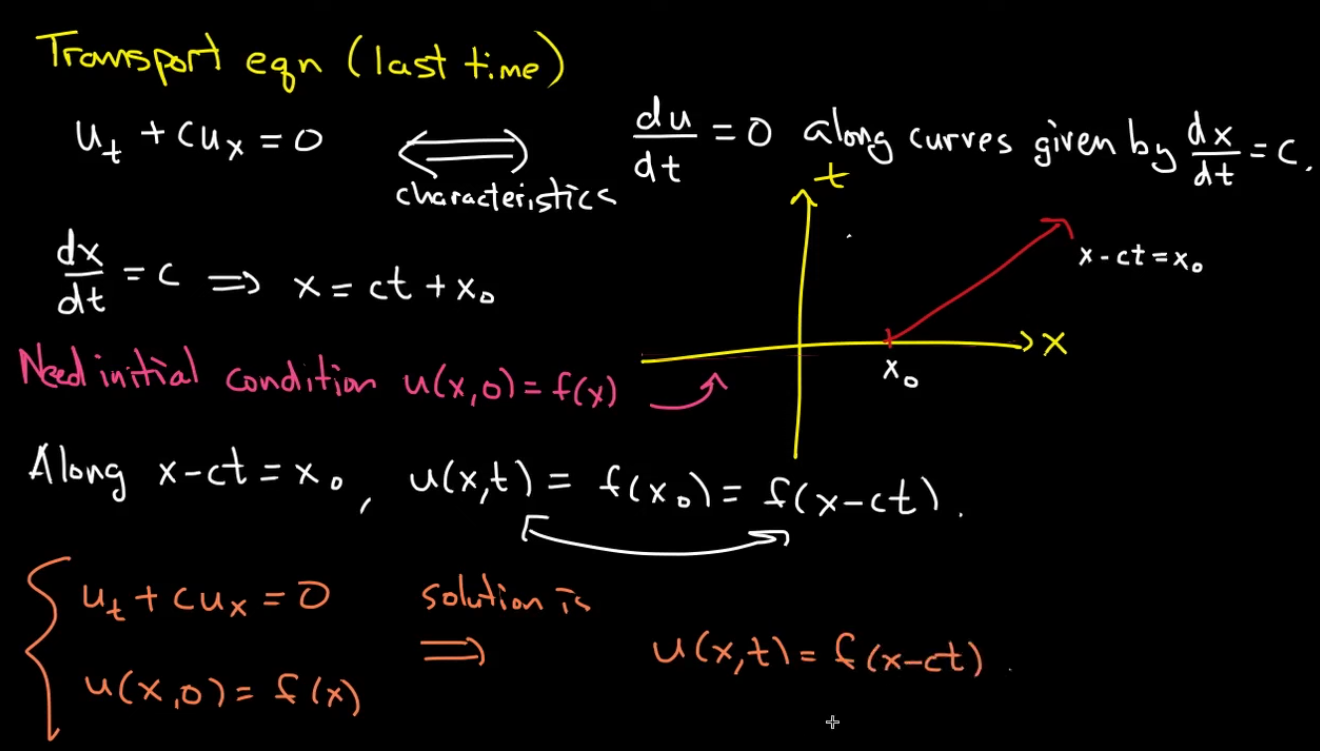 Transport eqn (last time)
u_t + cu_x = 0 ⟺ du/dt = 0 along curves given by dx/dt = c.
characteristics
t
dx/dt = c ⟹ x = ct + x₀
x - ct = x₀
x
x₀
Need initial condition u(x,0) = f(x)
Along x - ct = x₀, u(x,t) = f(x₀) = f(x-ct).
u_t + cu_x = 0 solution is
⟹ u(x,t) = f(x-ct).
u(x,0) = f(x)